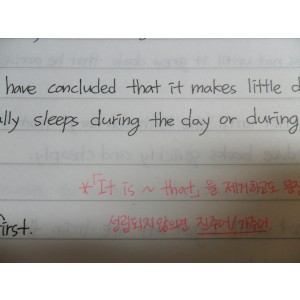 have concluded that it makes little
ally sleeps during the day or during
*「It is ~ that」을 제거하고도
first. 성립되지 않으면 진주어/가주어